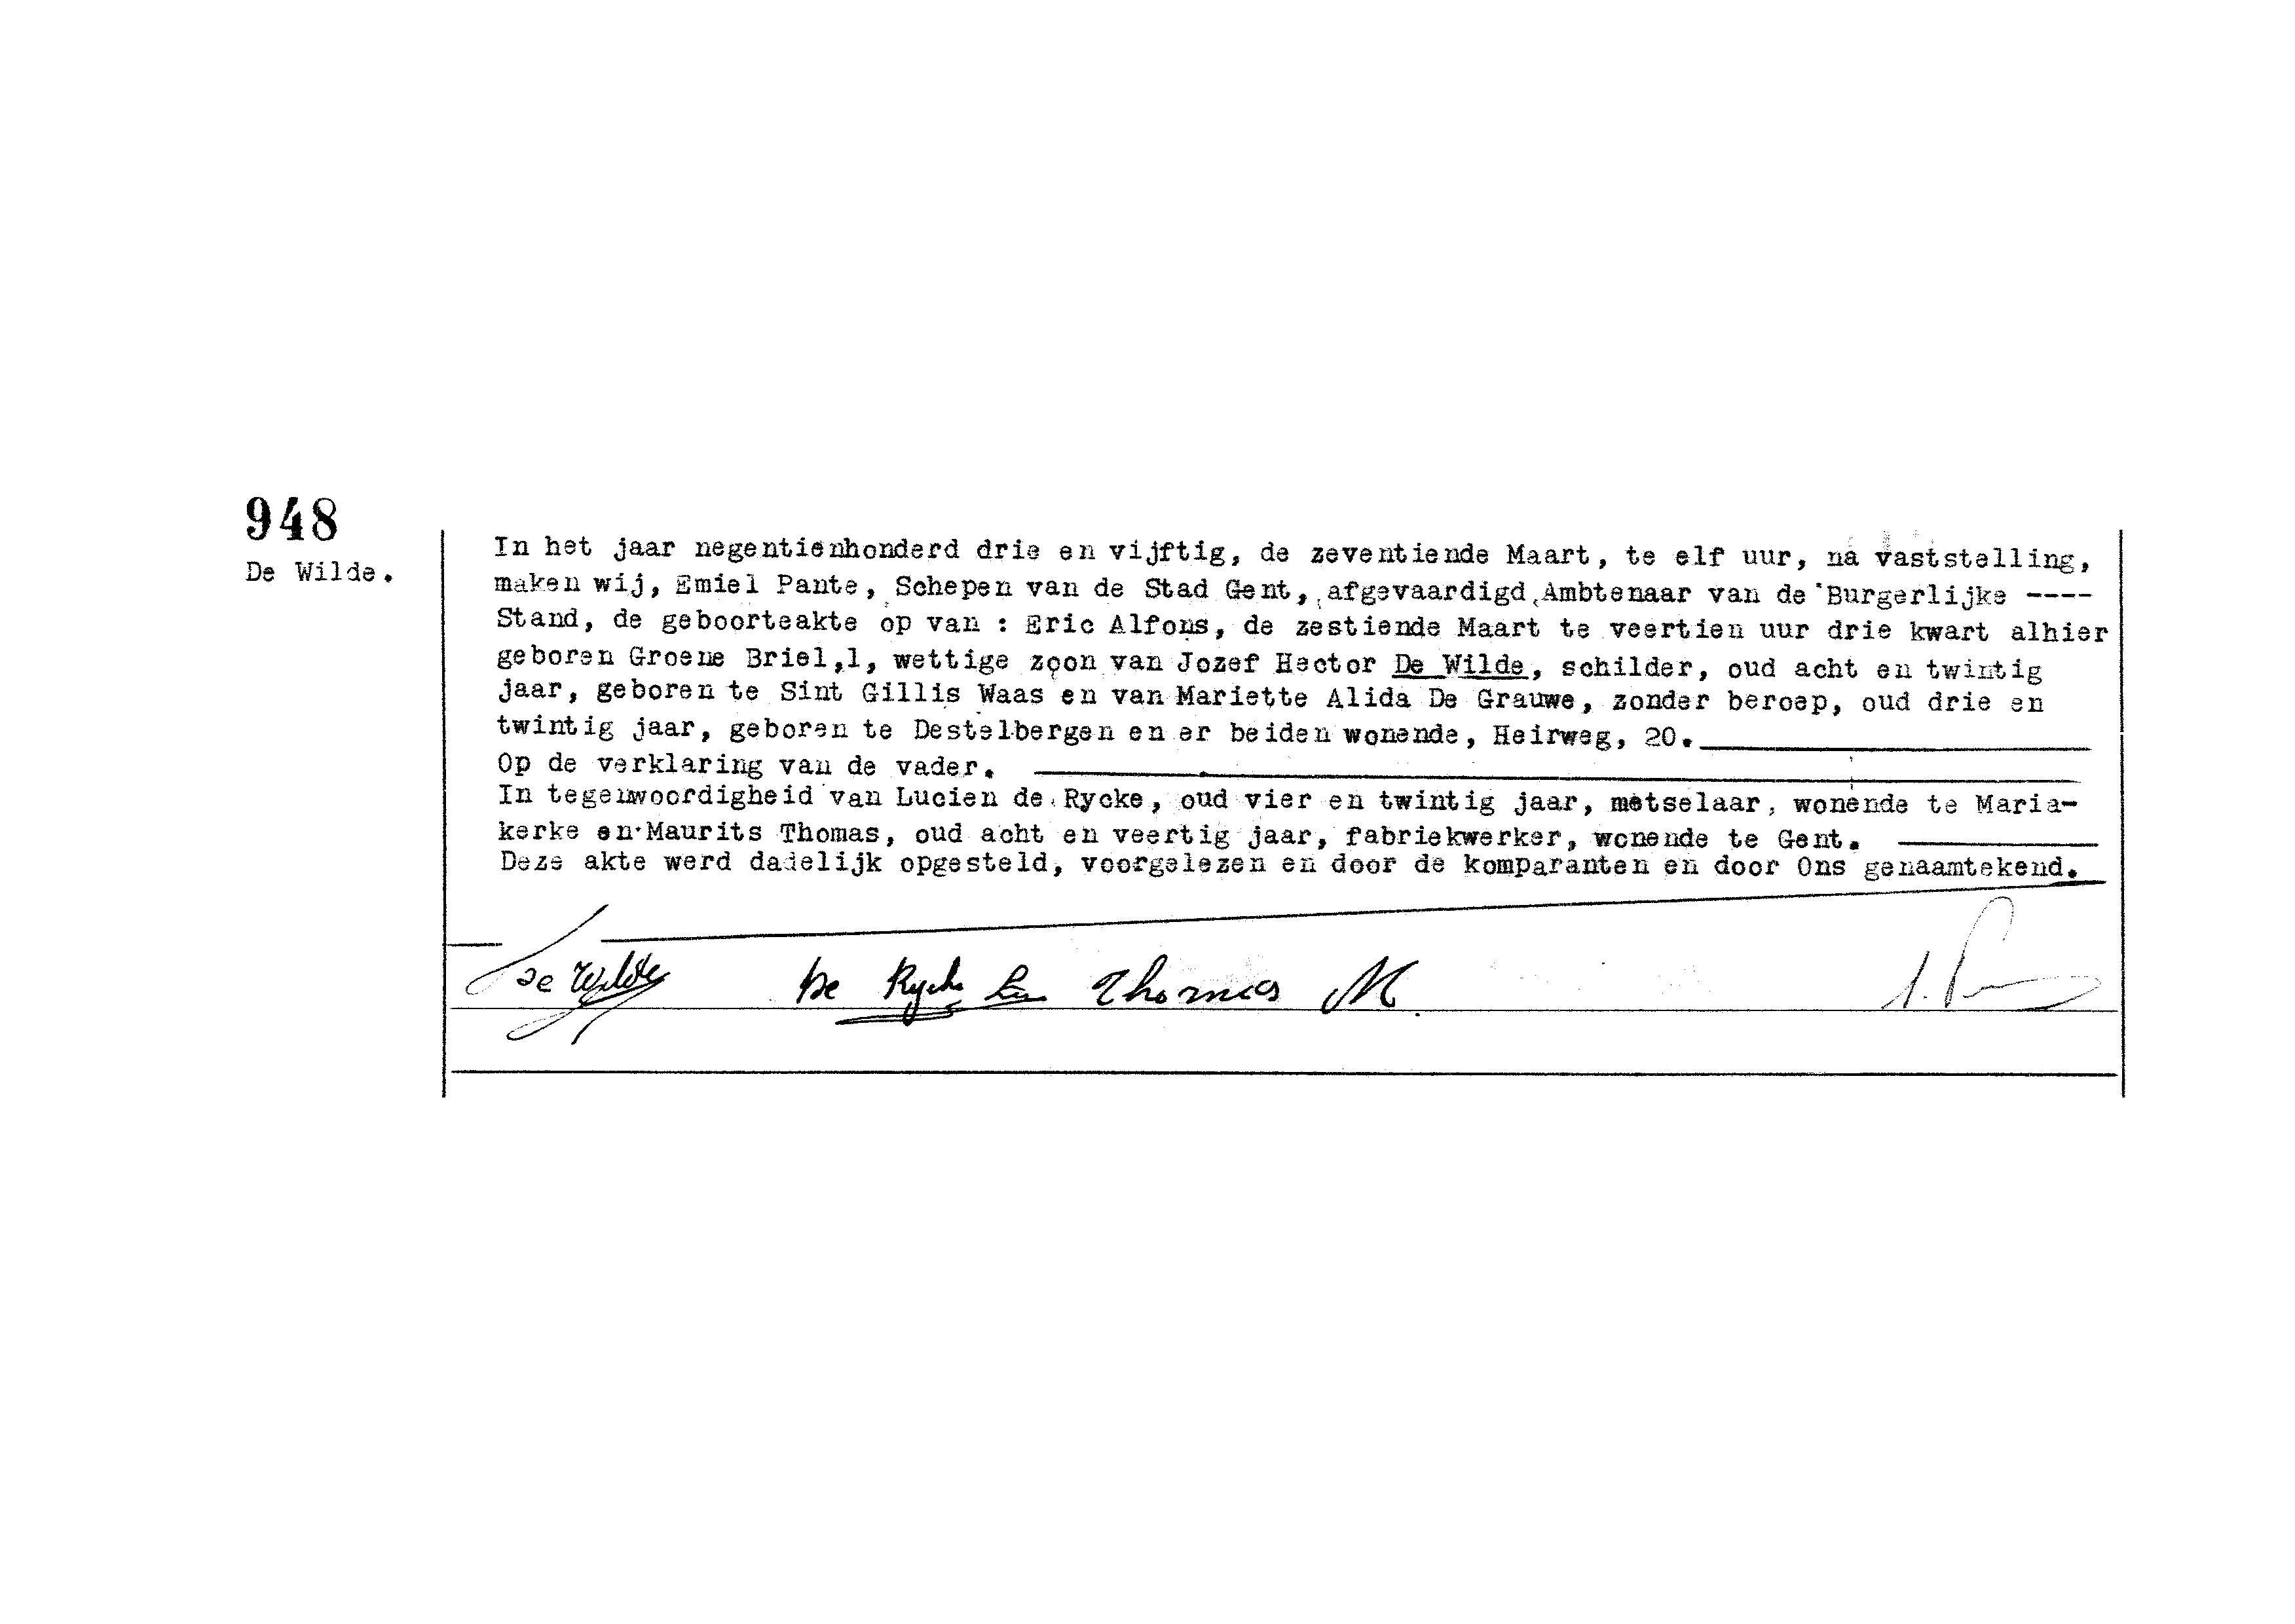 948
De Wilde.
In het jaar negentienhonderd drie en vijftig, de zeventiende Maart, te elf uur, na vaststelling,
maken wij, Emiel Pante, Schepen van de Stad Gent, afgevaardigd Ambtenaar van de Burgerlijke ----
Stand, de geboorteakte op van : Eric Alfons, de zestiende Maart te veertien uur drie kwart alhier
geboren Groene Briel,1, wettige zoon van Jozef Hector De Wilde, schilder, oud acht en twintig
jaar, geboren te Sint Gillis Waas en van Mariette Alida De Grauwe, zonder beroep, oud drie en
twintig jaar, geboren te Destelbergen en er beiden wonende, Heirweg, 20.
Op de verklaring van de vader.
In tegenwoordigheid van Lucien de Rycke, oud vier en twintig jaar, metselaar, wonende te Maria-
kerke en Maurits Thomas, oud acht en veertig jaar, fabriekwerker, wonende te Gent.
Deze akte werd dadelijk opgesteld, voorgelezen en door de komparanten en door Ons genaamtekend.
De Wilde De Rycke Thomas M.